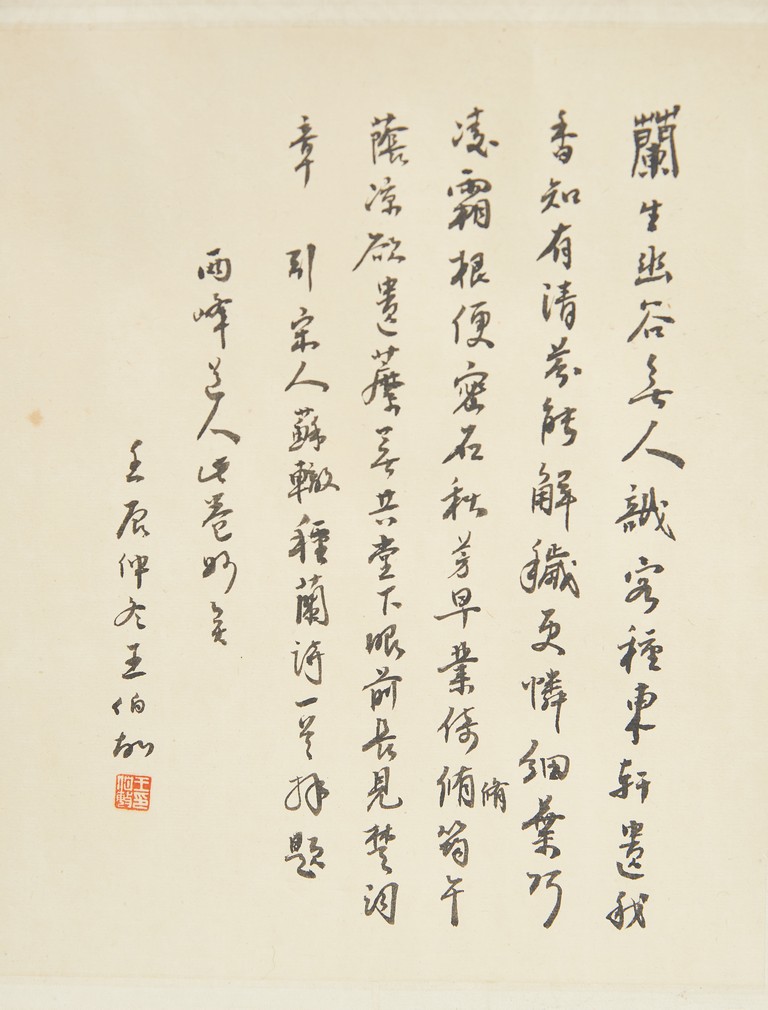 蘭生幽谷無人識客種東軒遺我
香知有清芬能解穢更憐細葉巧
凌霜根便密石秋芳早叢倚脩脩筠午
蔭涼欲遺蘪蕪共堂下眼前長見楚詞
章 引宋人蘇轍種蘭詩一首拜題
兩峰道人此卷妙矣
壬辰仲冬王伯敏
王印伯敏